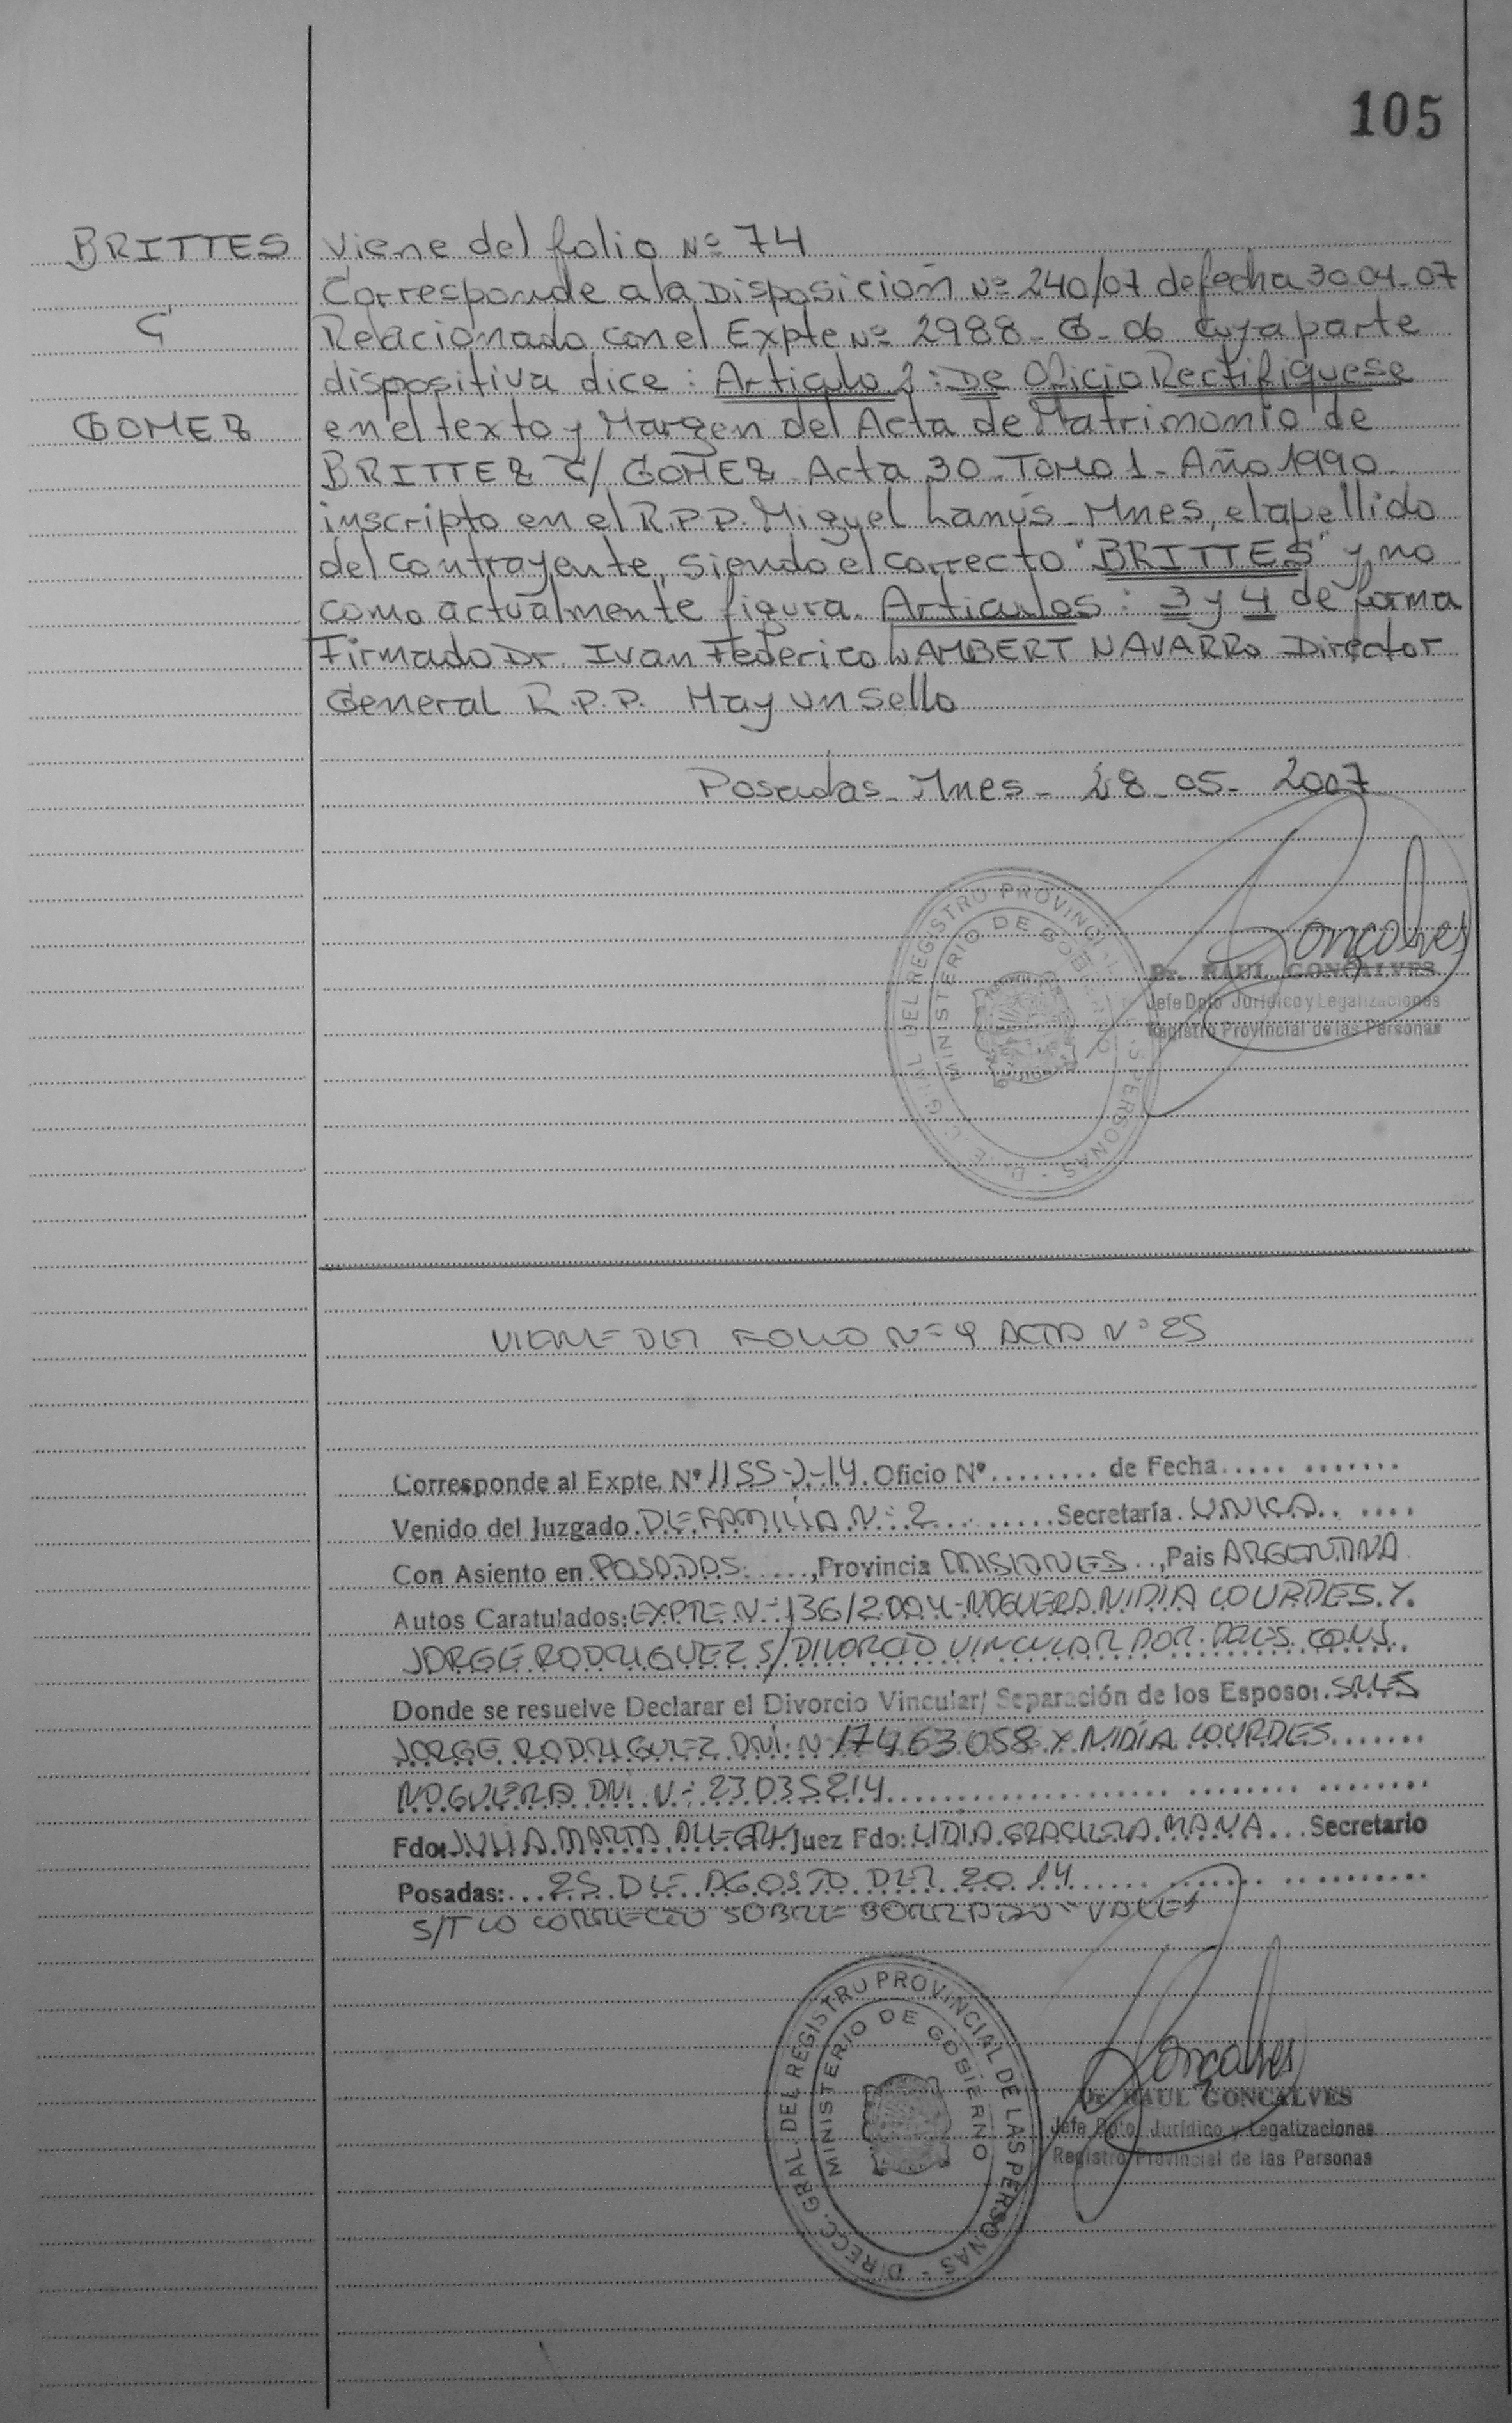 105
BRITTES
C/
GOMEZ
Viene del folio Nº 74
Corresponde a la Disposición Nº 240/07 de fecha 30.04-07
Relacionado con el Expte Nº 2988-G-06 cuya parte
dispositiva dice: Articulo 2: De Oficio Rectifiquese
en el texto y Margen del Acta de Matrimonio de
BRITTEZ C/ GOMEZ - Acta 30 - Tomo 1 - Año 1990 -
inscripto en el R.P.P. Miguel Lanús - Mnes, el apellido
del contrayente, siendo el correcto "BRITTES" y no
como actualmente figura. Articulos: 3 y 4 de forma
Firmado Dr. Ivan Federico LAMBERT NAVARRO Director
General R.P.P. Hay un sello
Posadas - Mnes - 28-05-2007
DIREC. GRAL. DEL REGISTRO PROVINCIAL DE LAS PERSONAS
MINISTERIO DE GOBIERNO
Gonçalves
Dr. RAUL GONÇALVES
Jefe Dpto Jurídico y Legalizaciones
Registro Provincial de las Personas
VIENE DEL FOLIO Nº 4 ACTA Nº 25
Corresponde al Expte. Nº 1155-J-14. Oficio Nº ........ de Fecha ..... .......
Venido del Juzgado DE FAMILIA Nº 2 ........ Secretaría UNICA .. ....
Con Asiento en POSADAS ....., Provincia MISIONES .., Pais ARGENTINA
Autos Caratulados: EXPTE Nº 136/2004 - NOGUERA NIDIA LOURDES Y
JORGE RODRIGUEZ S/ DIVORCIO VINCULAR POR PRES. CONJ.
Donde se resuelve Declarar el Divorcio Vincular/ Separación de los Esposo: SRES
JORGE RODRIGUEZ DNI Nº 17463058 Y NIDÍA LOURDES .......
NOGUERA DNI Nº 23035214 .................... ........ ........
Fdo: JULIA MARTA ALEGRE Juez Fdo: LIDIA GRACIELA MANA ... Secretario
Posadas: ... 25 DE AGOSTO DEL 2014 ...... ....... ..........
S/T LO CORREGIDO SOBRE BORRADO - VALE
DIRECC. GRAL. DEL REGISTRO PROVINCIAL DE LAS PERSONAS
MINISTERIO DE GOBIERNO
Gonçalves
Dr. RAUL GONÇALVES
Jefe Dpto. Jurídico y Legalizaciones
Registro Provincial de las Personas